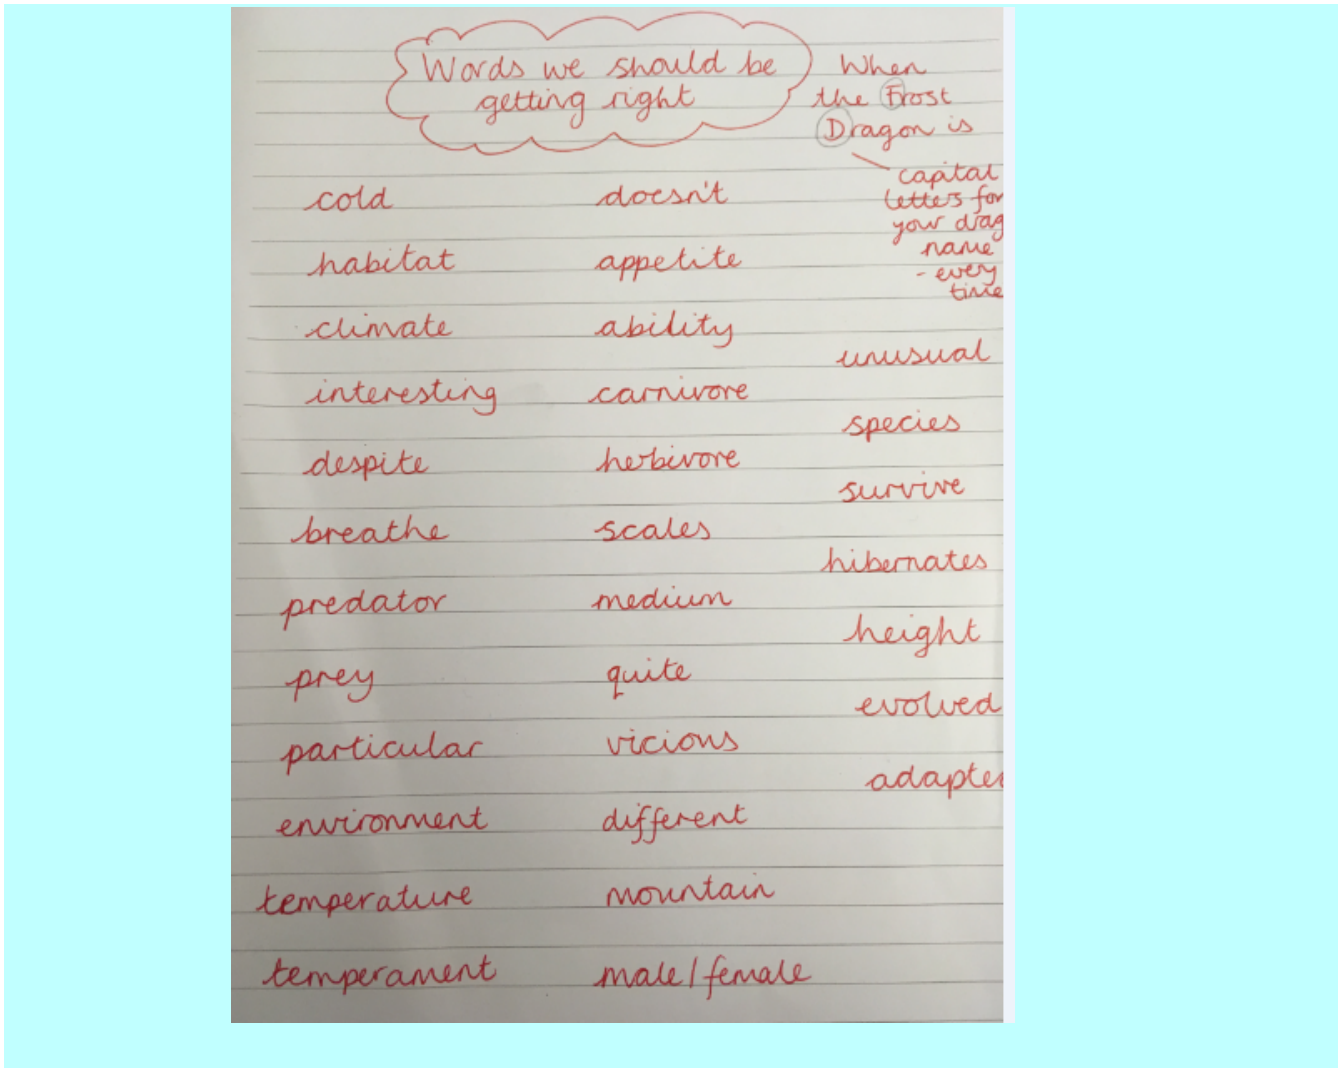 Words we should be
getting right
cold
habitat
climate
interesting
despite
breathe
predator
prey
particular
environment
temperature
temperament
doesn't
appetite
ability
carnivore
herbivore
scales
medium
quite
vicious
different
mountain
male/female
When
the Frost
Dragon is
capital
letters for
your drag
name
- every
time
unusual
species
survive
hibernates
height
evolved
adapte